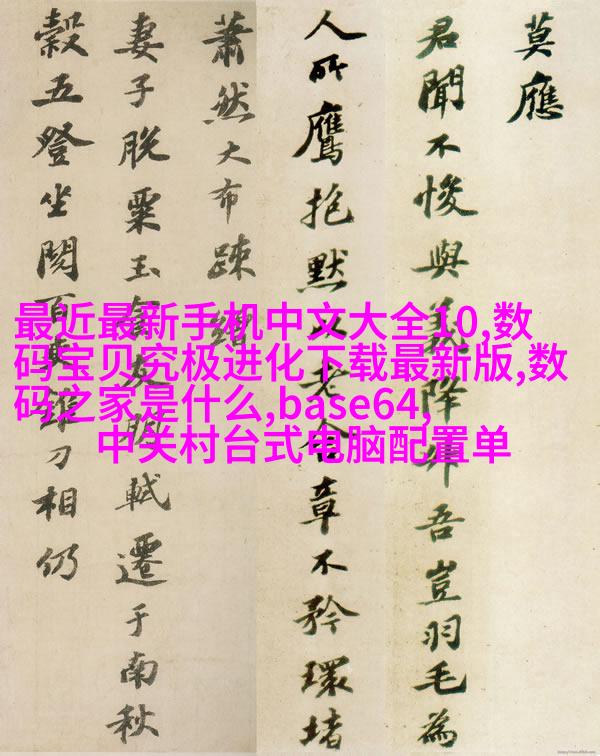 莫應
君聞不悛與義降升吾豈羽毛為
人所鷹抱默以老含章不矜環堵
蕭然大布疎繒
妻子脫粟玉食友朋軾遷于南秋
穀五登坐閱百吏錐刀相仍
最近最新手机中文大全10,数
码宝贝究极进化下载最新版,数
码之家是什么,base64,
中关村台式电脑配置单